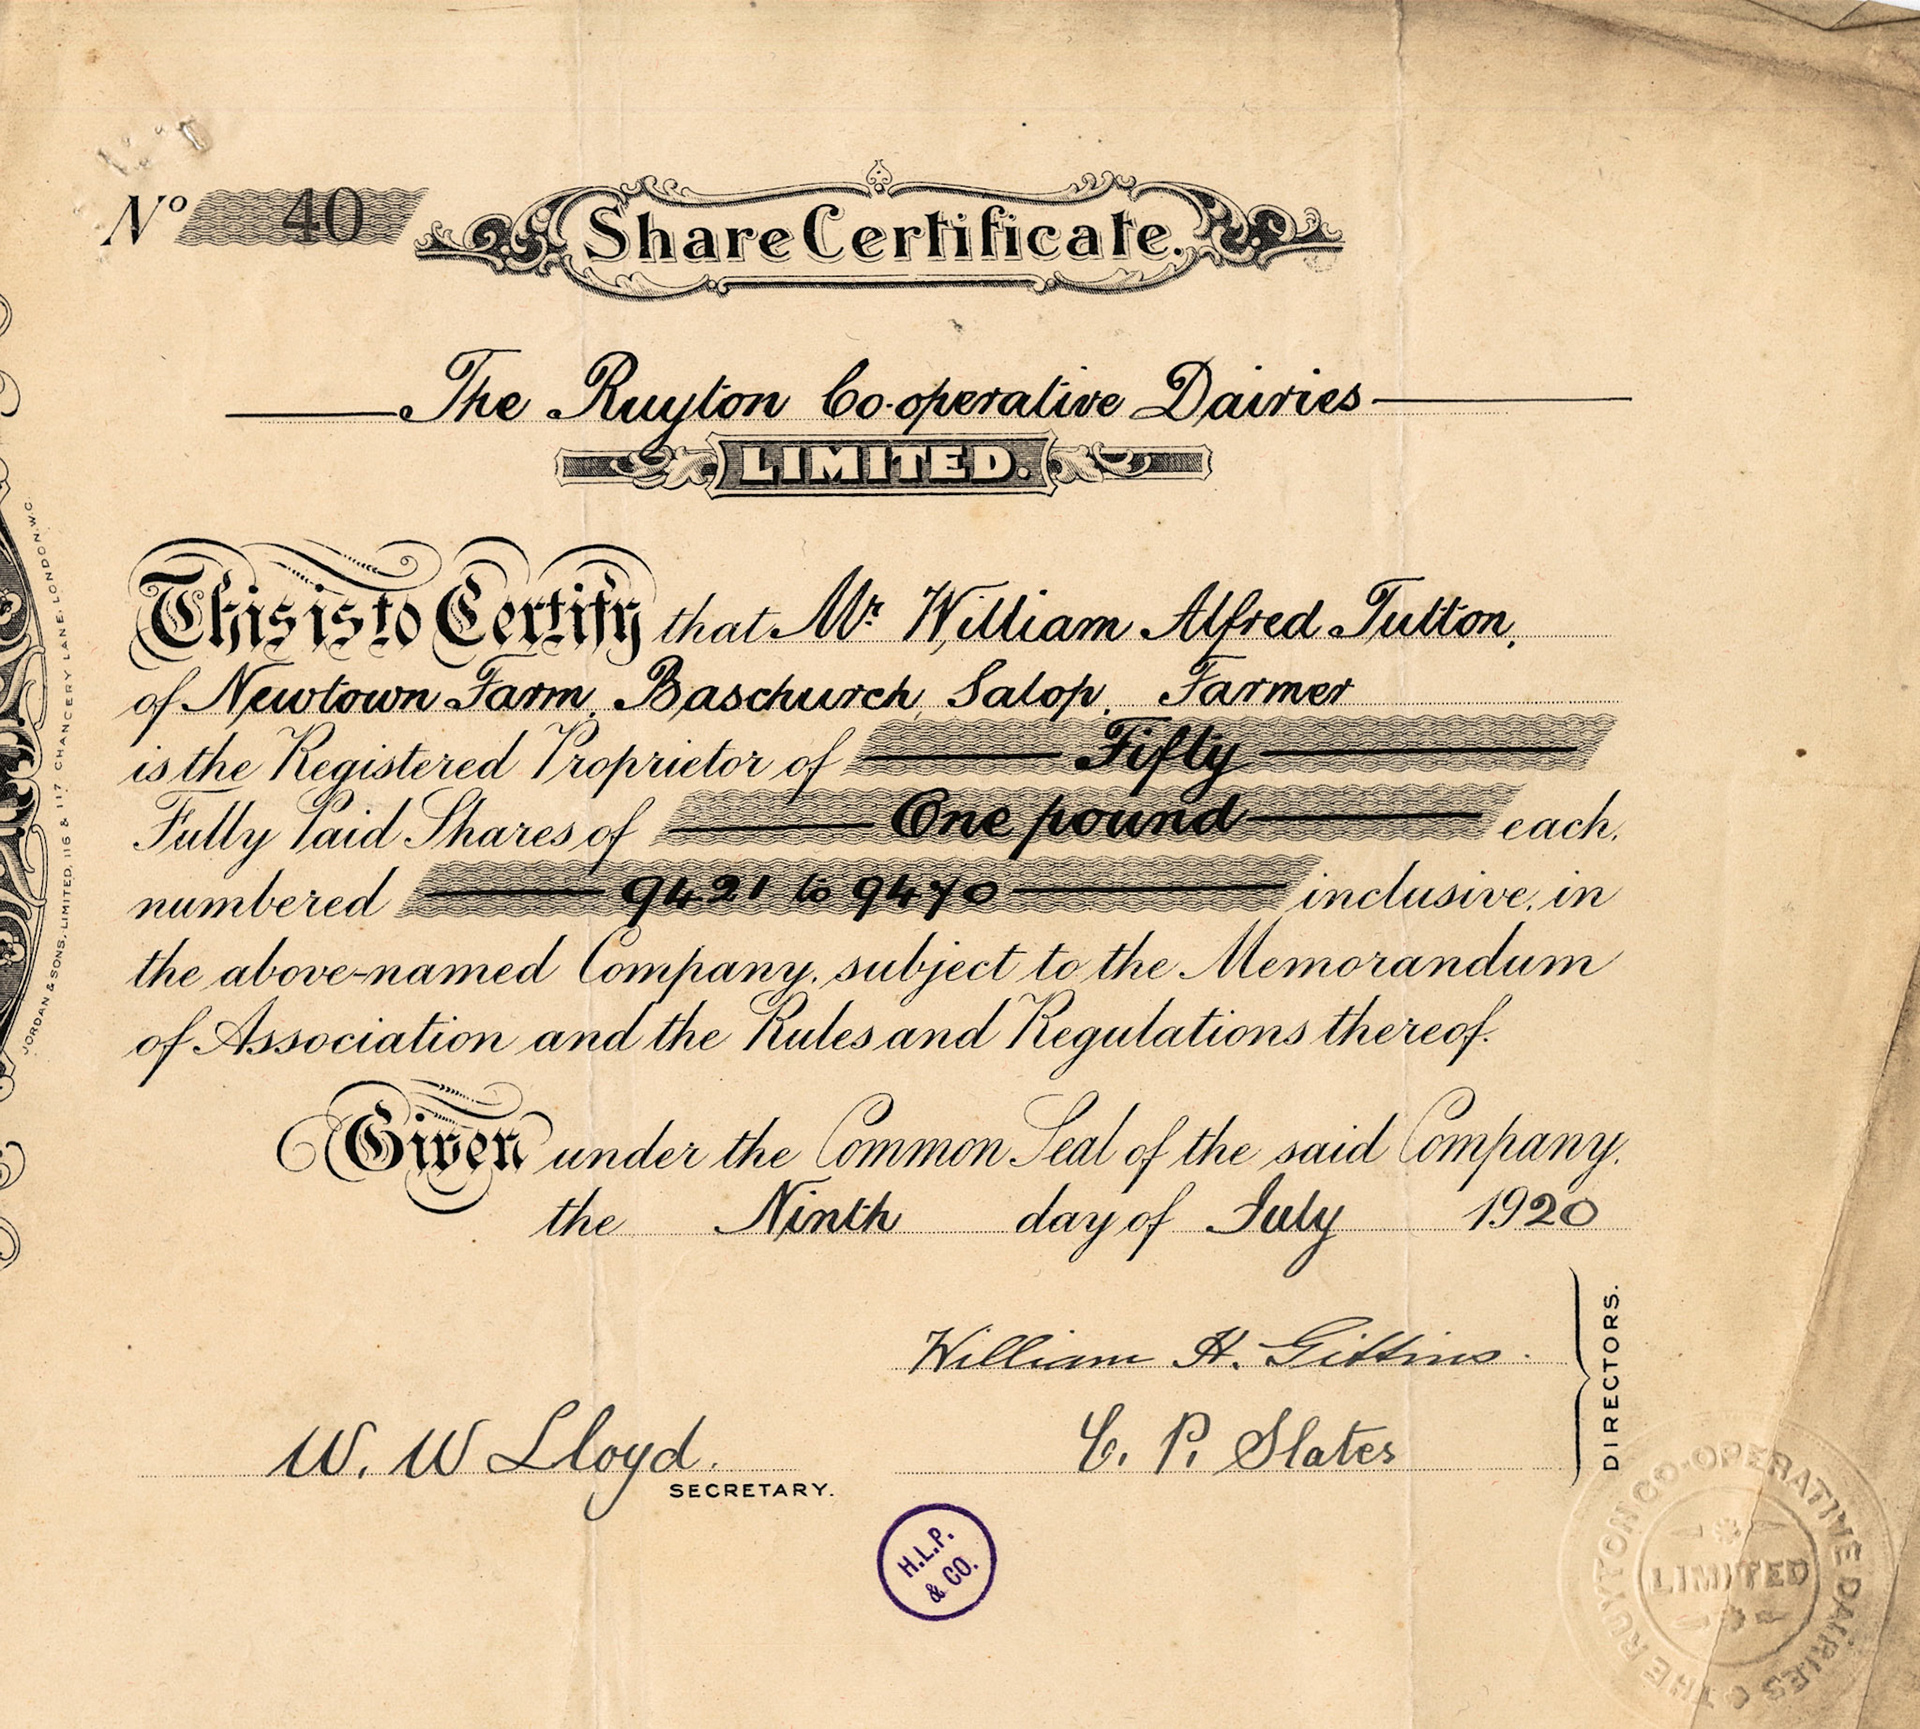 Nº 40
Share Certificate.
The Ruyton Co-operative Dairies
LIMITED.
This is to Certify that Mr William Alfred Tutton,
of Newtown Farm, Baschurch, Salop, Farmer
is the Registered Proprietor of Fifty
Fully Paid Shares of One pound each,
numbered 9421 to 9470 inclusive, in
the above-named Company, subject to the Memorandum
of Association and the Rules and Regulations thereof.
Given under the Common Seal of the said Company,
the Ninth day of July 1920
William H. Gittins.
C. P. Slater
DIRECTORS.
W. W Lloyd.
SECRETARY.
H.L.P.
& CO.
THE RUYTON CO-OPERATIVE DAIRIES
LIMITED
JORDAN & SONS, LIMITED, 116 & 117 CHANCERY LANE, LONDON, W.C.